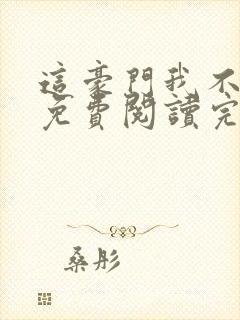 這豪門我不
免費閱讀完
桑彤